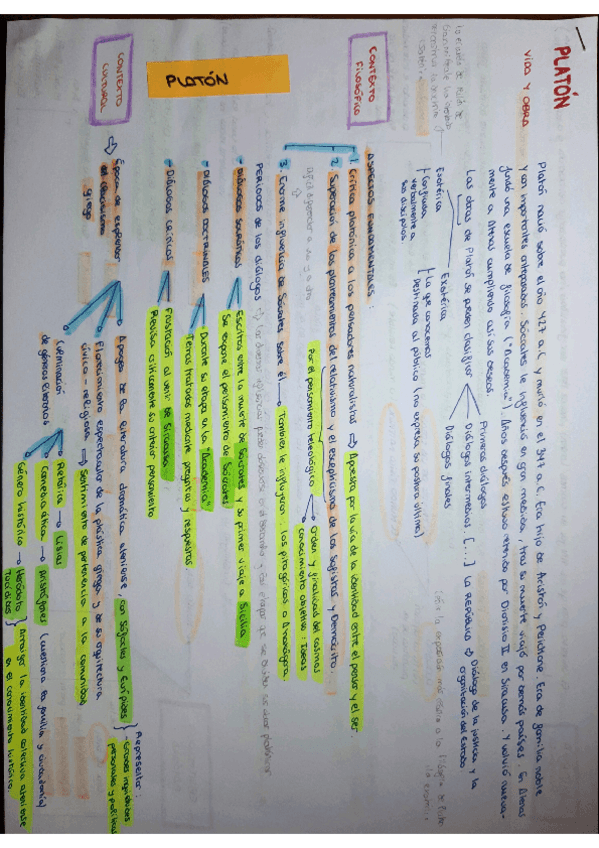 PLATÓN
VIDA Y OBRA
Platón nació sobre el año 427 a.C y murió en el 347 a.C. Era hijo de Aristón y Perictione. Era de familia noble
y con importantes antepasados. Sócrates le influenció en gran medida, tras su muerte viajó por demás países. En Atenas
fundó una escuela de filosofía ("Academia"). Años después estuvo retenido por Dionisio II en Siracusa. Y volvió nueva-
mente a Atenas cumpliendo así sus deseos.
Las obras de Platón se pueden clasificar
Primeros diálogos
Diálogos intermedios [...] LA REPÚBLICA → Diálogo de la justicia y la
organización del Estado
Diálogos finales
Esotérica
(confiada
verbalmente a
sus discípulos
Exotérica
La que conocemos
destinada al público (no expresa su postura última)
CONTEXTO
FILOSÓFICO
ASPECTOS FUNDAMENTALES:
1. Crítica platónica a los pensadores naturalistas ⇒ Apuesta por la vía de la identidad entre el pensar y el ser.
2. Superación de los planteamientos del relativismo y el escepticismo de los Sofistas y Demócrito.
Por el pensamiento teleológico
orden y finalidad del cosmos
conocimiento objetivo: Ideas
3. Enorme influencia de Sócrates sobre él → También le influyeron: los pitagóricos o Anaxágoras.
PERÍODOS de los diálogos
- DIÁLOGOS SOCRÁTICOS
Escritos entre la muerte de Sócrates y su primer viaje a Sicilia
Se expone el pensamiento de Sócrates
- DIÁLOGOS DOCTRINALES
Durante su etapa en la "Academia"
Temas tratados mediante preguntas y respuestas.
- DIÁLOGOS CRÍTICOS
Frustración al venir de Siracusa
Revisa críticamente su anterior pensamiento
PLATÓN
CONTEXTO
CULTURAL
⇒ Época de esplendor
del clasicismo
griego
Apogeo de la literatura dramática ateniense, con Sófocles y Eurípides
Representan:
- Grandes inquietudes
personales y políticas
Florecimiento espectacular de la plástica griega y de su arquitectura
cívica - religiosa → Sentimiento de pertenencia a la comunidad
Culminación
de géneros literarios
Retórica → Lisias
Comedia ática → Aristófanes (cuestiona la familia y ciudadanía)
Género histórico → Heródoto
Tucídides
Arraigar la identidad colectiva ateniense
en el conocimiento histórico.